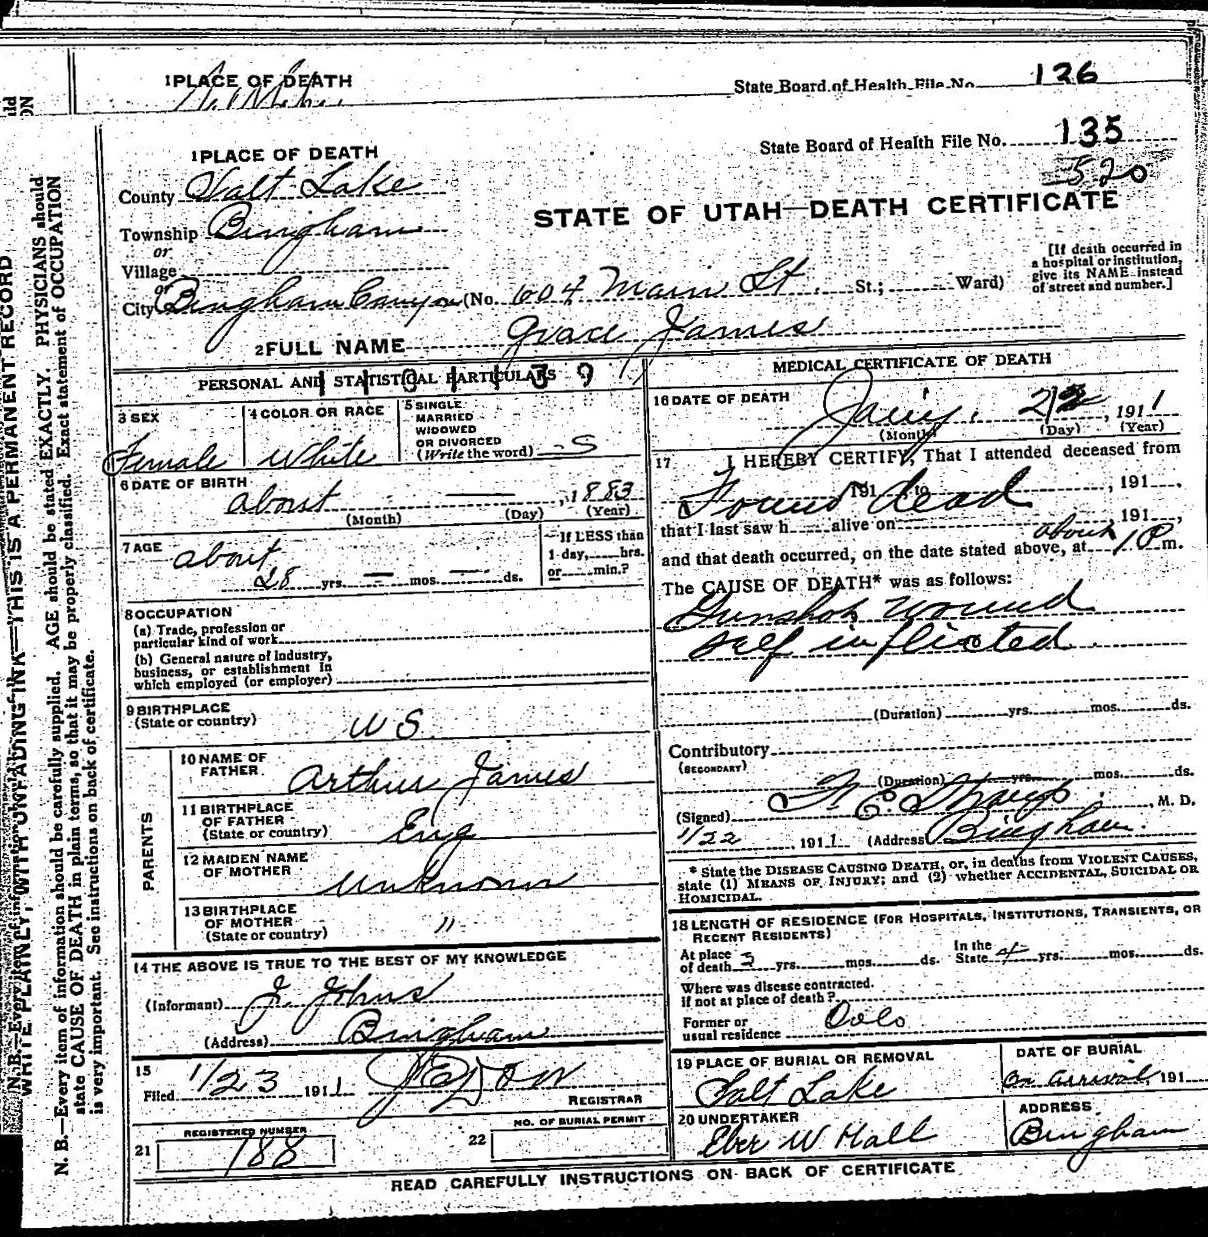 1 PLACE OF DEATH
State Board of Health File No. 126
1 PLACE OF DEATH
State Board of Health File No. 135
520
County Salt Lake
STATE OF UTAH—DEATH CERTIFICATE
Township Bingham
or
Village
or
City Bingham Canyon (No. 604 Main St. St.; Ward)
[If death occurred in
a hospital or institution,
give its NAME instead
of street and number.]
2 FULL NAME Grace James
PERSONAL AND STATISTICAL PARTICULARS
3 SEX
Female
4 COLOR OR RACE
White
5 SINGLE
MARRIED
WIDOWED
OR DIVORCED
(Write the word) S
6 DATE OF BIRTH
about — , 1883
(Month) (Day) (Year)
7 AGE
about
28 yrs. — mos. — ds.
If LESS than
1 day, hrs.
or min.?
8 OCCUPATION
(a) Trade, profession or
particular kind of work
(b) General nature of industry,
business, or establishment in
which employed (or employer)
9 BIRTHPLACE
(State or country)
U S.
PARENTS
10 NAME OF
FATHER
Arthur James
11 BIRTHPLACE
OF FATHER
(State or country)
Eng
12 MAIDEN NAME
OF MOTHER
Unknown
13 BIRTHPLACE
OF MOTHER
(State or country)
"
14 THE ABOVE IS TRUE TO THE BEST OF MY KNOWLEDGE
(Informant) J. Johns
(Address) Bingham
15
Filed 1/23 1911
REGISTRAR
21
REGISTERED NUMBER
188
22
NO. OF BURIAL PERMIT
MEDICAL CERTIFICATE OF DEATH
16 DATE OF DEATH
Jany. 22, 1911
(Month) (Day) (Year)
17 I HEREBY CERTIFY, That I attended deceased from
Found dead
191 , to , 191 ,
that I last saw h alive on , 191 ,
and that death occurred, on the date stated above, at about 10 m.
The CAUSE OF DEATH* was as follows:
Gunshot wound
self inflicted.
(Duration) yrs. mos. ds.
Contributory
(SECONDARY)
(Duration) yrs. mos. ds.
(Signed) , M. D.
1/22, 1911 (Address) Bingham.
* State the DISEASE CAUSING DEATH, or, in deaths from VIOLENT CAUSES,
state (1) MEANS OF INJURY; and (2) whether ACCIDENTAL, SUICIDAL OR
HOMICIDAL.
18 LENGTH OF RESIDENCE (FOR HOSPITALS, INSTITUTIONS, TRANSIENTS, OR
RECENT RESIDENTS)
At place
of death 3 yrs. mos. ds.
In the
State 4 yrs. mos. ds.
Where was disease contracted.
if not at place of death?
Former or
usual residence
19 PLACE OF BURIAL OR REMOVAL
Salt Lake
DATE OF BURIAL
On arrival, 191
20 UNDERTAKER
Eber W Hall
ADDRESS
Bingham
READ CAREFULLY INSTRUCTIONS ON BACK OF CERTIFICATE
WRITE PLAINLY, WITH UNFADING INK—THIS IS A PERMANENT RECORD
N. B.—Every item of information should be carefully supplied. AGE should be stated EXACTLY. PHYSICIANS should
state CAUSE OF DEATH in plain terms, so that it may be properly classified. Exact statement of OCCUPATION
is very important. See instructions on back of certificate.